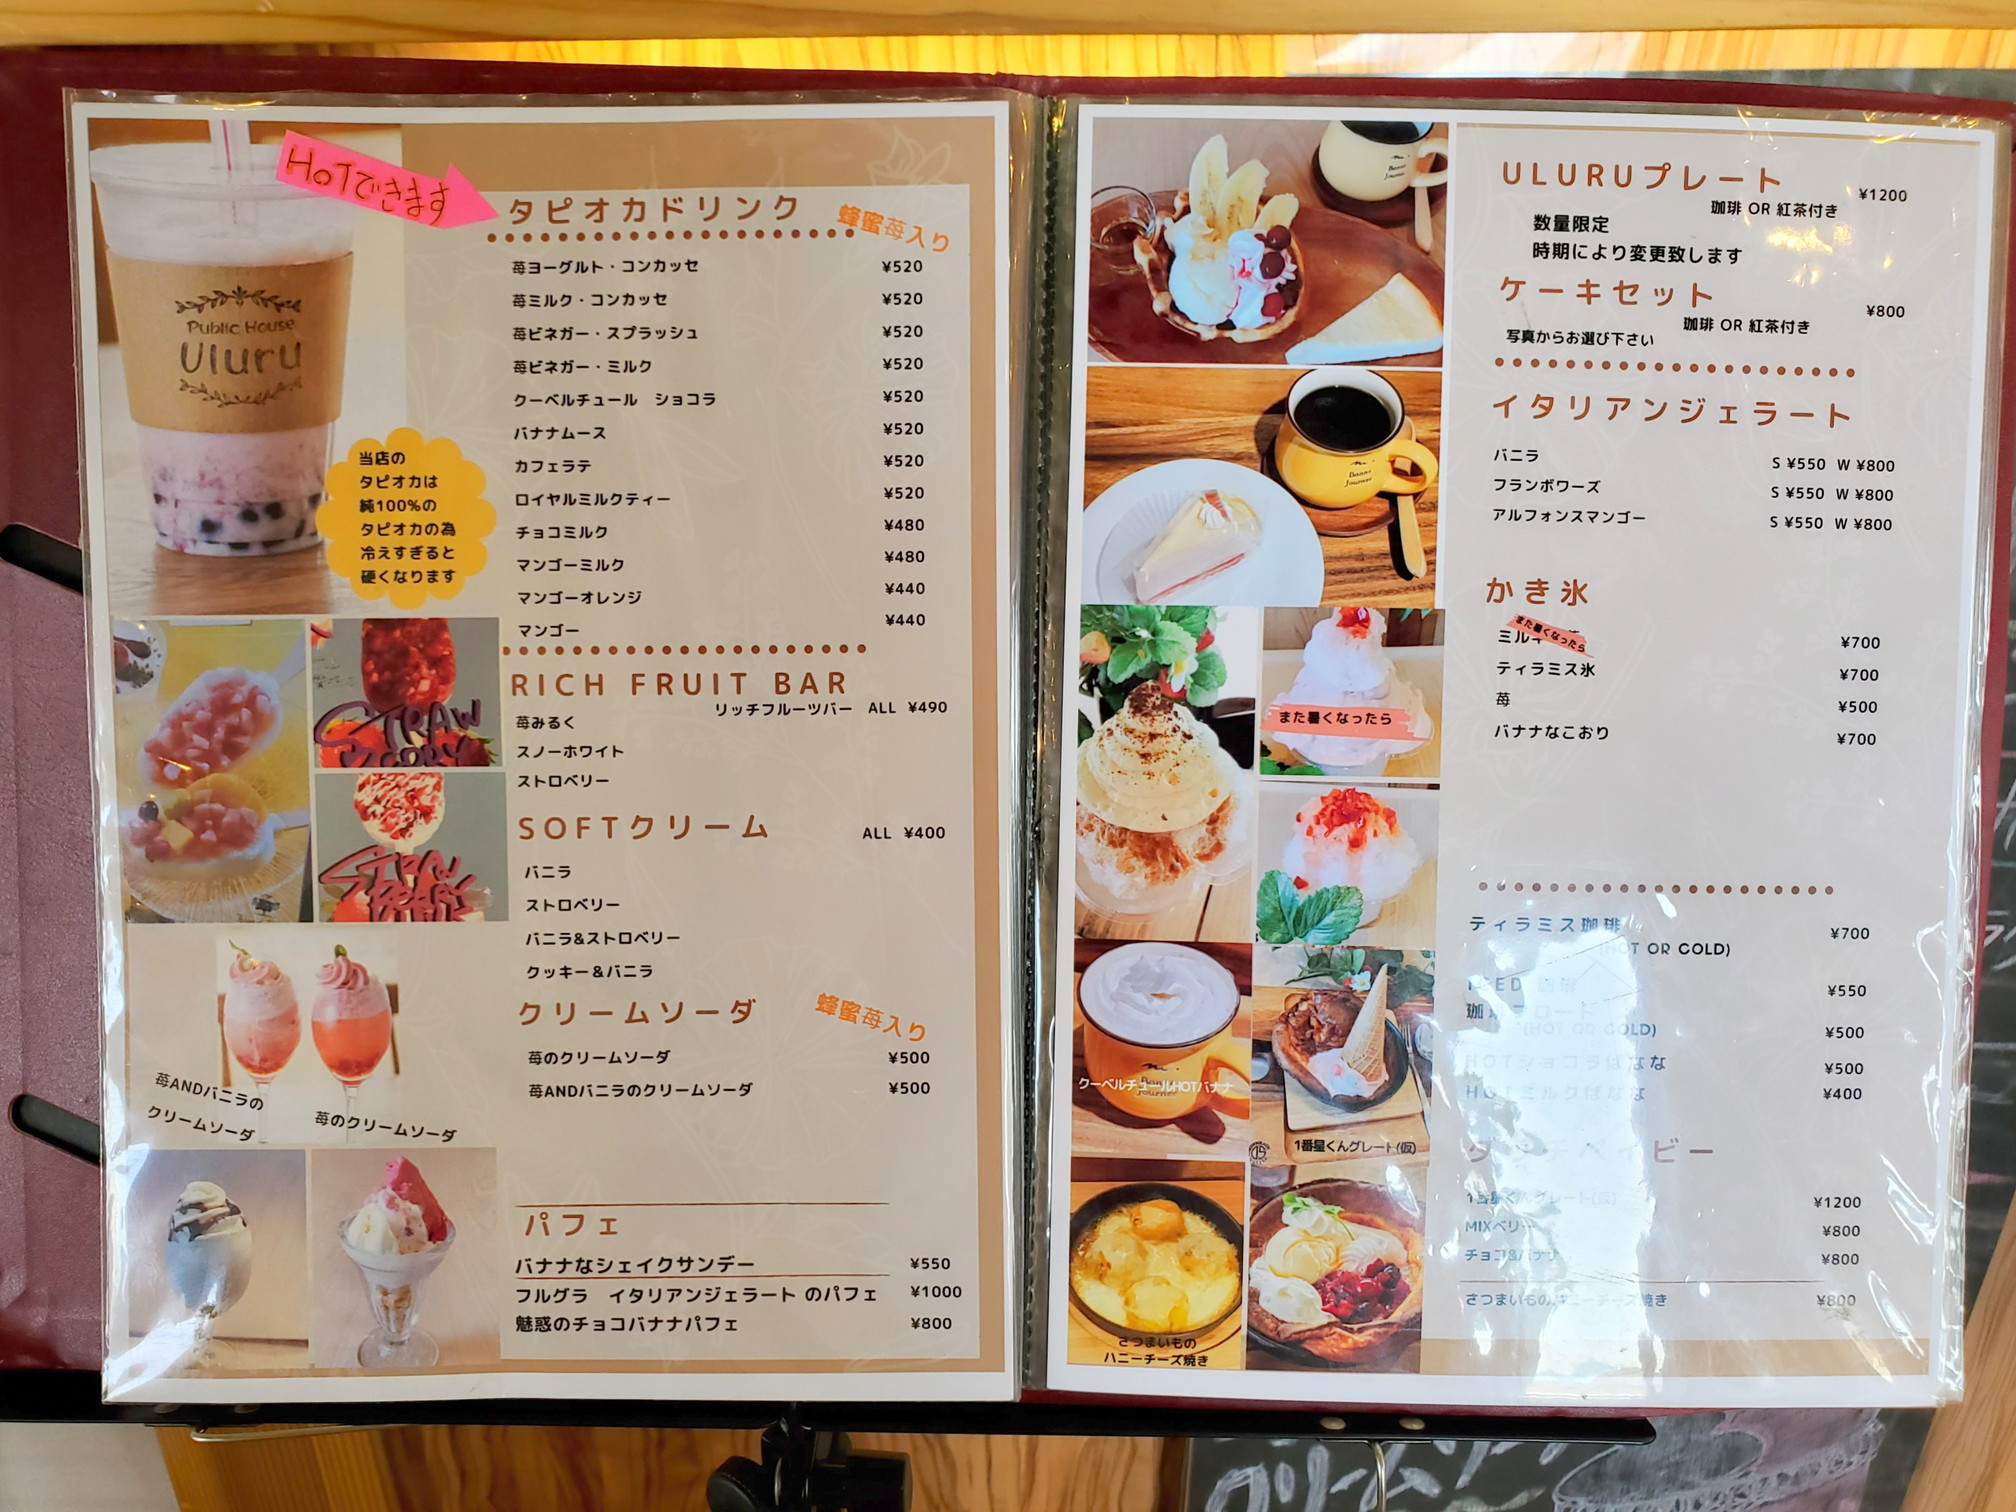 HOTできます
Public House
Uluru
当店の
タピオカは
純100%の
タピオカの為
冷えすぎると
硬くなります
タピオカドリンク
蜂蜜苺入り
苺ヨーグルト・コンカッセ ¥520
苺ミルク・コンカッセ ¥520
苺ビネガー・スプラッシュ ¥520
苺ビネガー・ミルク ¥520
クーベルチュール ショコラ ¥520
バナナムース ¥520
カフェラテ ¥520
ロイヤルミルクティー ¥520
チョコミルク ¥480
マンゴーミルク ¥480
マンゴーオレンジ ¥440
マンゴー ¥440
RICH FRUIT BAR
リッチフルーツバー ALL ¥490
苺みるく
スノーホワイト
ストロベリー
SOFTクリーム ALL ¥400
バニラ
ストロベリー
バニラ&ストロベリー
クッキー&バニラ
クリームソーダ
蜂蜜苺入り
苺のクリームソーダ ¥500
苺ANDバニラのクリームソーダ ¥500
苺ANDバニラの
クリームソーダ
苺のクリームソーダ
パフェ
バナナなシェイクサンデー ¥550
フルグラ イタリアンジェラート のパフェ ¥1000
魅惑のチョコバナナパフェ ¥800
ULURUプレート ¥1200
珈琲 OR 紅茶付き
数量限定
時期により変更致します
ケーキセット ¥800
珈琲 OR 紅茶付き
写真からお選び下さい
イタリアンジェラート
バニラ S ¥550 W ¥800
フランボワーズ S ¥550 W ¥800
アルフォンスマンゴー S ¥550 W ¥800
かき氷
また暑くなったら
¥700
ティラミス氷 ¥700
苺 ¥500
バナナなこおり ¥700
また暑くなったら
ティラミス珈琲 ¥700
(HOT OR COLD)
¥550
¥500
(HOT OR COLD)
HOTショコラばなな ¥500
HOTミルクばなな ¥400
クーベルチュールHOTバナナ
1番星くんグレート(仮)
1番星くんグレート(仮) ¥1200
MIXベリー ¥800
チョコ&バナナ ¥800
さつまいものハニーチーズ焼き ¥800
さつまいもの
ハニーチーズ焼き